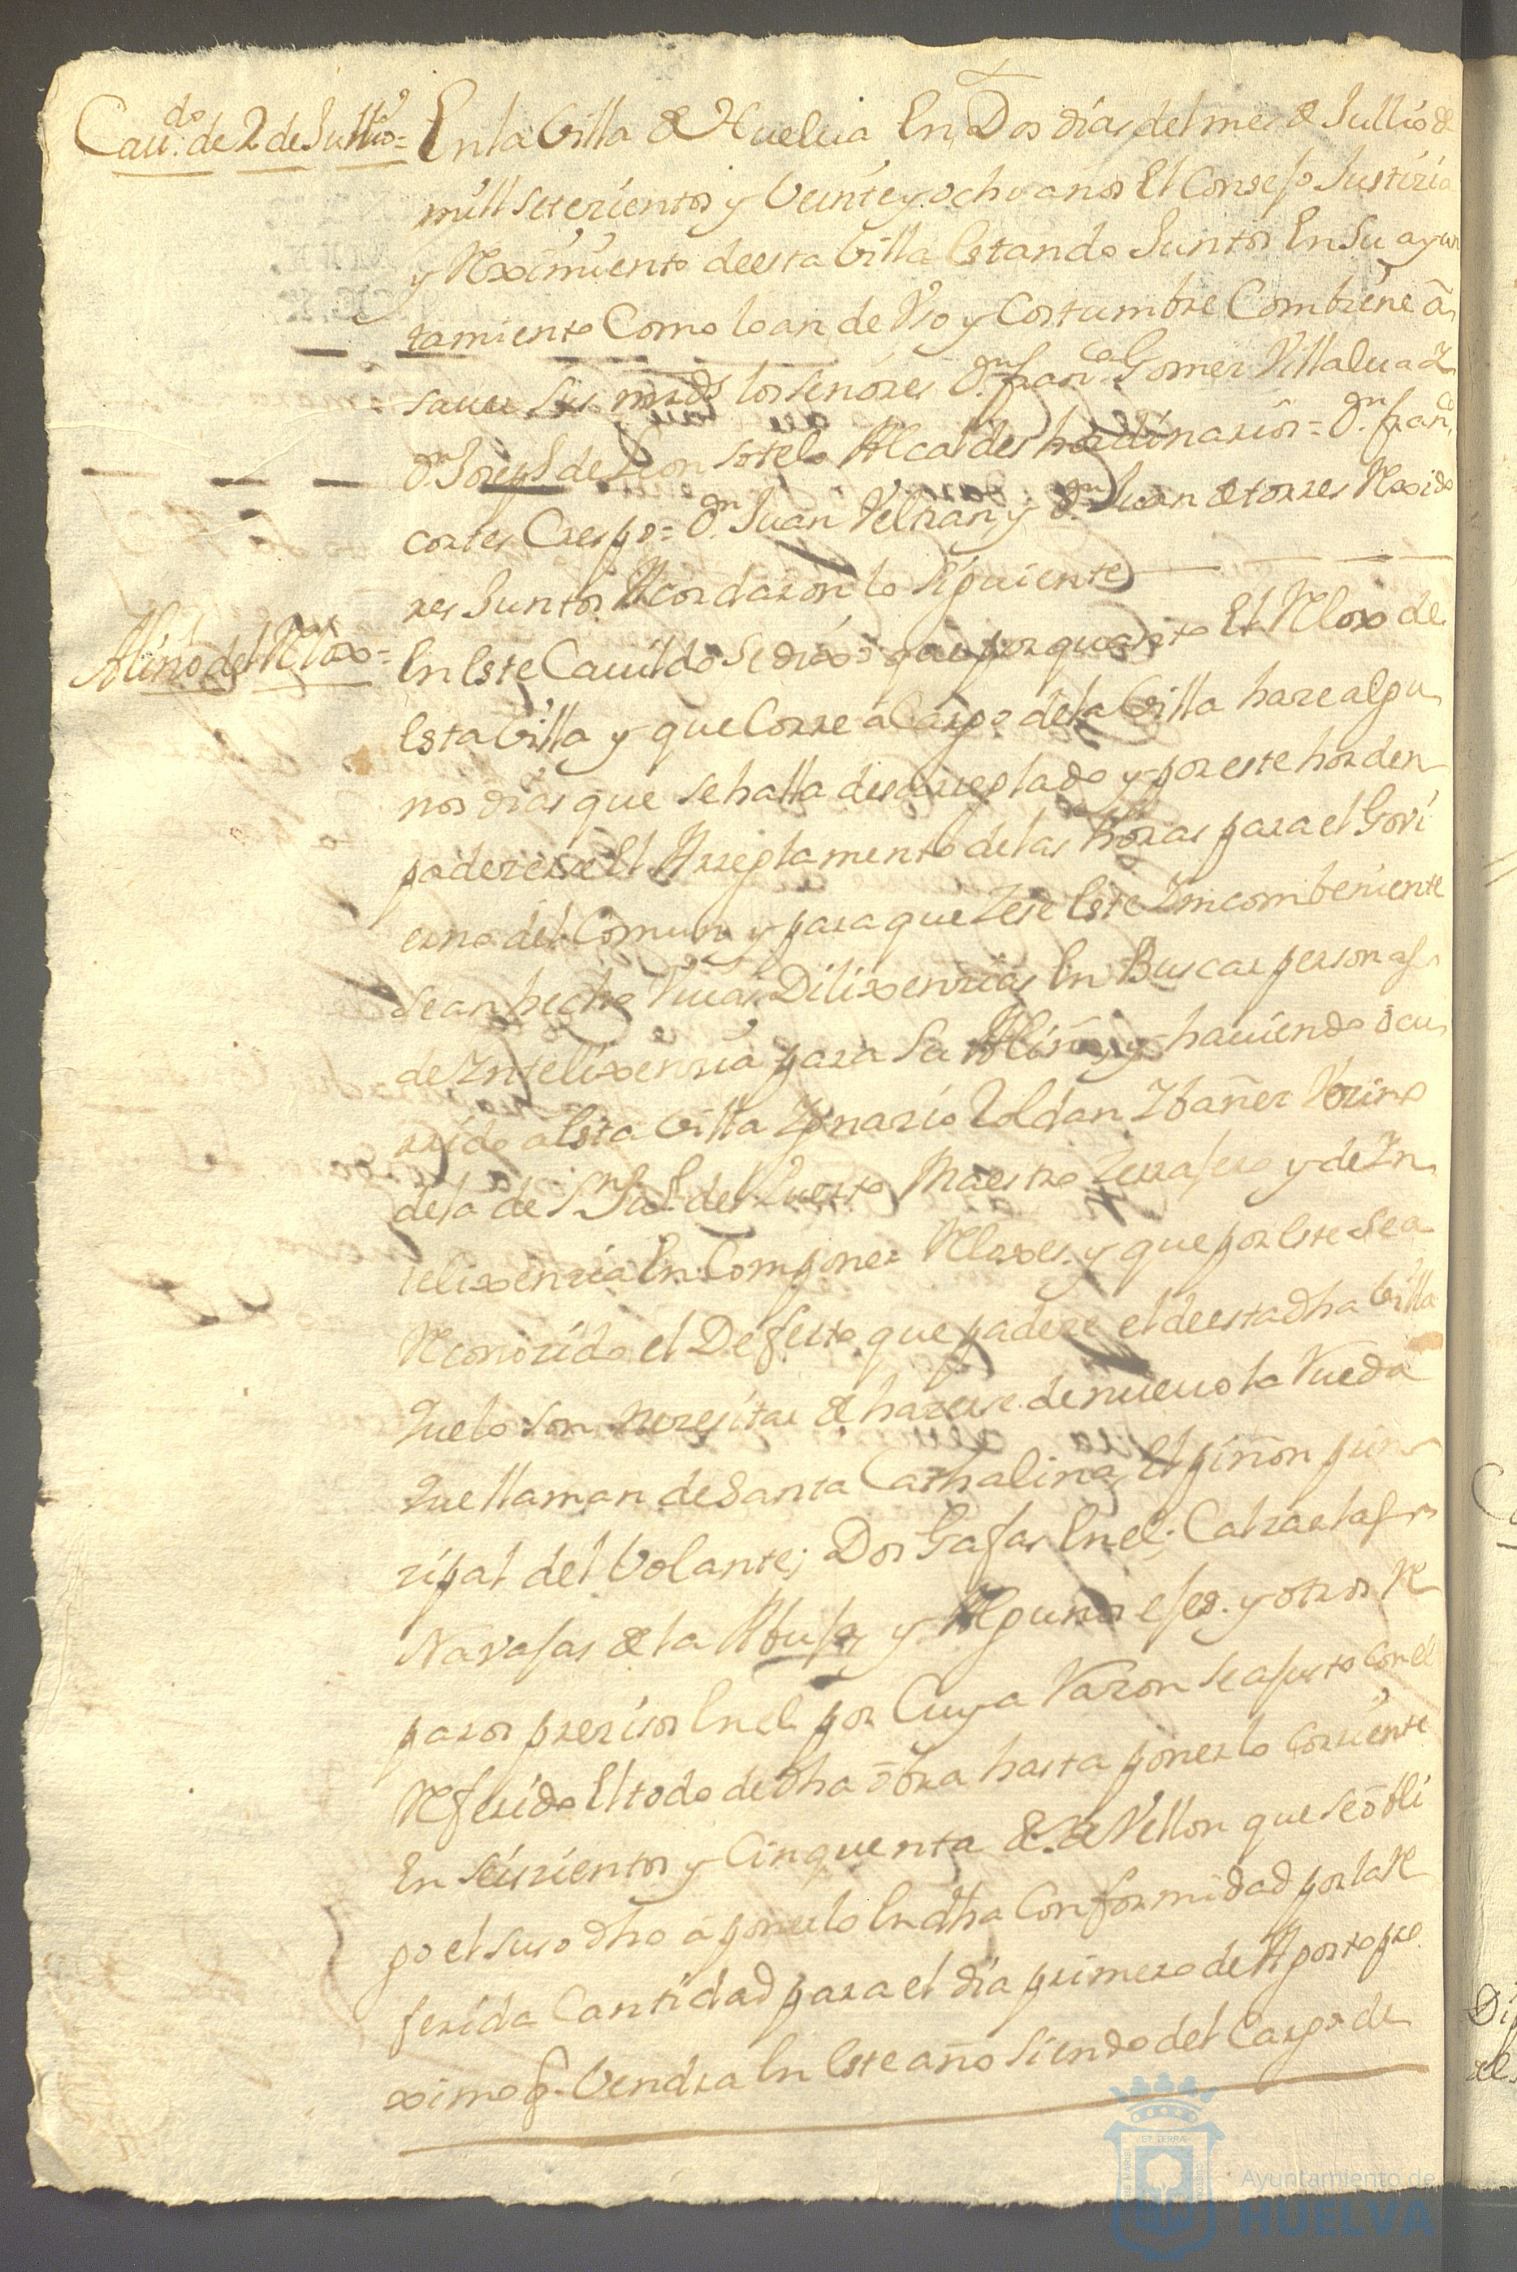 Cau.do de 2 de Jullio =
En la Villa de Huelua En Dos dias del mes de Jullio de
mill seteçientos y Veinte y ocho años El Consejo Justiçia
y Reximiento deesta Villa Estando Juntos En Su ayun
tamiento Como lo an de Vso y Costumbre Combiene â
sauer sus mrds los señores Dn. franco. Gomez Villalua
Dn. Joseph de Leon sotelo Alcaldes hordinarios = Dn. franco.
cortes Crespo = Dn. Juan Veltran, y Dn. Juan de torres Rexido
res Juntos Acordaron lo Siguiente
Aliño del Relox =
En Este Cauildo se dixo que por quanto El Relox de
Esta Villa y que Corre a Cargo de la Villa haze algu
nos dias que se halla desarreglado y por este horden
padezerse El Arreglamento de las horas para el Govi
erno del Comun, y para que Zese Este Incombeniente
se an hecho Viuas Dilixençias En Buscar personas
de Intelixençia para su Aliño, y hauiendo ocu
rrido a Esta Villa Ignazio Roldan Ibañez Vezino
de la de Sn. Ju.o del Puerto Maestro Zerrajero y de In
telixençia En Componer Reloxes, y que por Este se a
Reconozido el Defecto que padeze el de esta dha Villa
Que lo son nezesitar de hazerse de nueuo la Rueda
Que llaman de Santa Cathalina, El piñon prin
zipal del Volante; Dos Gafas En el; Calzar las
Navajas de la Abuja, y Algunos ejes. y otros Re
paros preçisos En el por Cuya Razon se ajusto con el
Referido El todo de dha ôbra hasta ponerlo corriente
En seisçientos y Cinquenta Rs. de Vellon que se ôbli
go el suso dho â ponerlo En dha Conformidad por la Re
ferida Cantidad para el dia primero de Agosto pro
ximo q. Vendra En Este año siendo del Cargo de
Ayuntamiento de
HUELVA